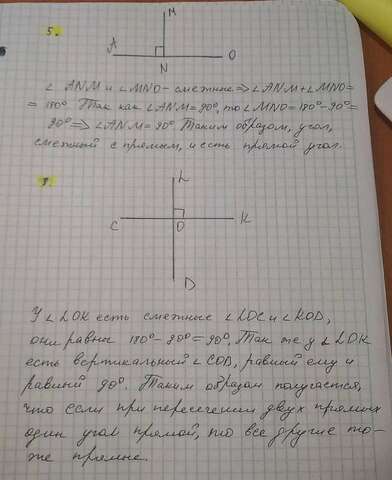 5.
M
A
O
N
∠ ANM и ∠MNO - смежные ⇒ ∠ANM + ∠MNO =
= 180°. Так как ∠ANM = 90°, то ∠MNO = 180° - 90° =
90° ⇒ ∠ANM = 90°. Таким образом, угол,
смежный с прямым, и есть прямой угол.
L
C
O
K
D
У ∠LOK есть смежные ∠LOC и ∠KOD,
они равны 180° - 90° = 90°. Так же у ∠LOK
есть вертикальный ∠COD, равный ему и
равный 90°. Таким образом получается,
что если при пересечении двух прямых
один угол прямой, то все другие то-
же прямые.